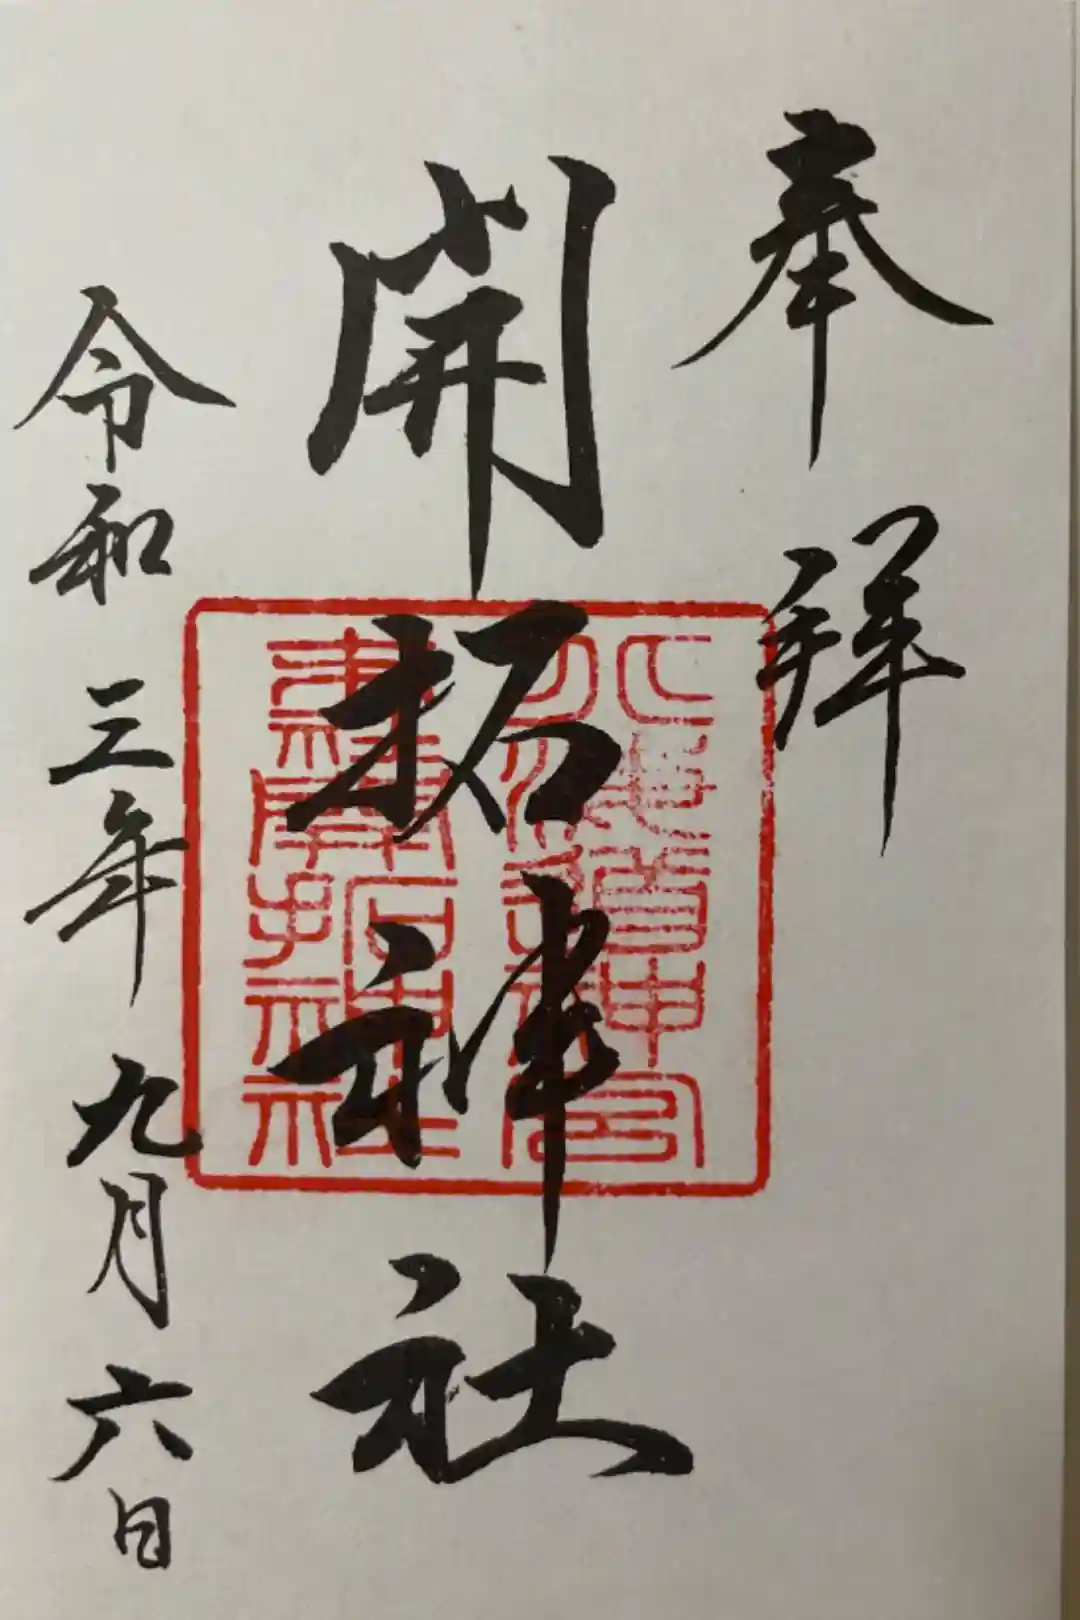 奉拜
開拓神社
北海道神宮
末社開拓神社
令和三年九月六日